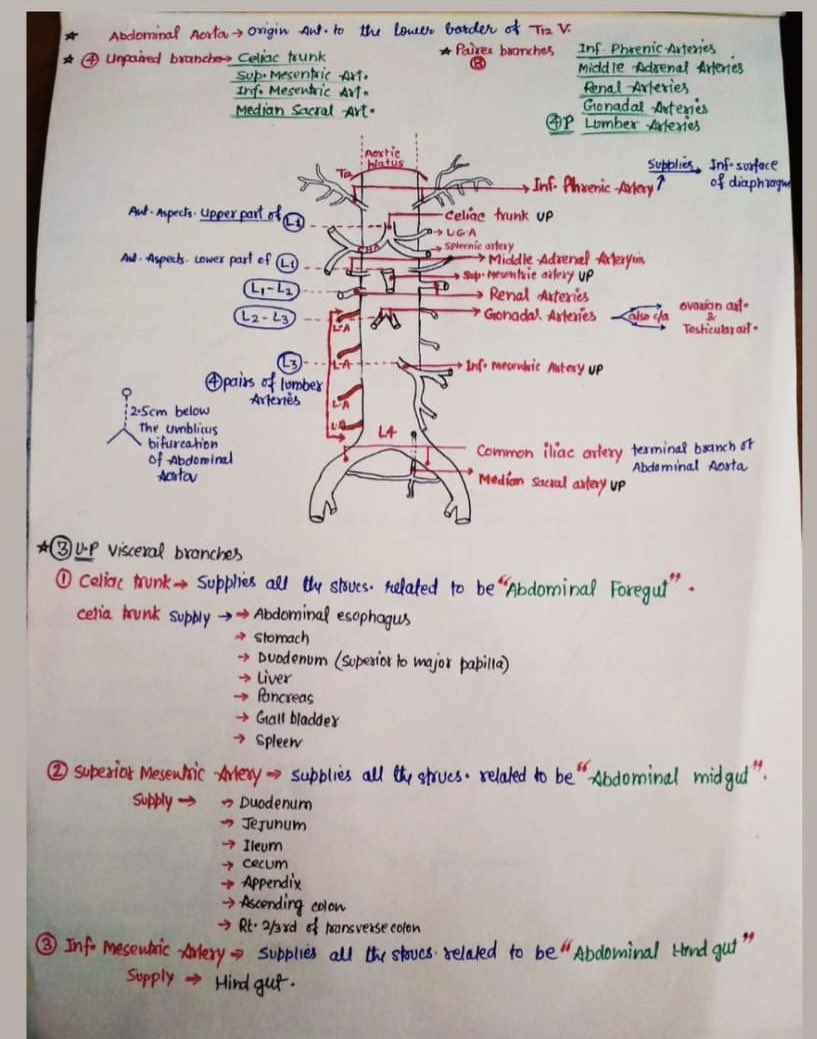 * Abdominal Aorta → origin Ant. to the lower border of T12 V.
* ④ Unpaired branch→ Celiac trunk
Sup. Mesentric Art.
Inf. Mesentric Art.
Median Sacral Art.
* Paires branches
⑧
Inf. Phrenic Arteries
Middle Adrenal Arteries
Renal Arteries
Gonadal Arteries
④P Lumber Arteries
Aortic
hiatus
T12
Inf. Phrenic Artery
Supplies Inf. surface
of diaphragm
Ant. Aspects. Upper part of L1
Celiac trunk UP
L.G.A
Splernic artery
CHA
Ant. Aspects. Lower part of L1
Middle Adrenal Arteryies
Sup. Mesentric artery UP
L1-L2
Renal Arteries
L2-L3
Gonadal Arteries also c/a
ovarian art.
&
Testicular art.
L.A
L3
L.A
Inf. Mesentric Astery UP
④pairs of lumber
Arteries
L.A
L.A
2.5cm below
The Umblicus
bifurcation
of Abdominal
Aorta
L4
Common iliac artery terminal branch of
Abdominal Aosta
Median Sacral artery UP
*③ U.P Visceral branches
① Celiac trunk → Supplies all the strucs. related to be "Abdominal Foregut".
celia trunk supply → → Abdominal esophagus
→ Stomach
→ Duodenum (Superior to major papilla)
→ Liver
→ Pancreas
→ Gall bladder
→ Spleen
② Superior Mesentric Artery → Supplies all the strucs. related to be "Abdominal midgut".
Supply → → Duodenum
→ Jejunum
→ Ileum
→ Cecum
→ Appendix
→ Ascending colon
→ Rt. 2/3rd of transverse colon
③ Inf. Mesentric Artery → Supplies all the strucs. related to be "Abdominal Hind gut"
Supply → Hind gut.